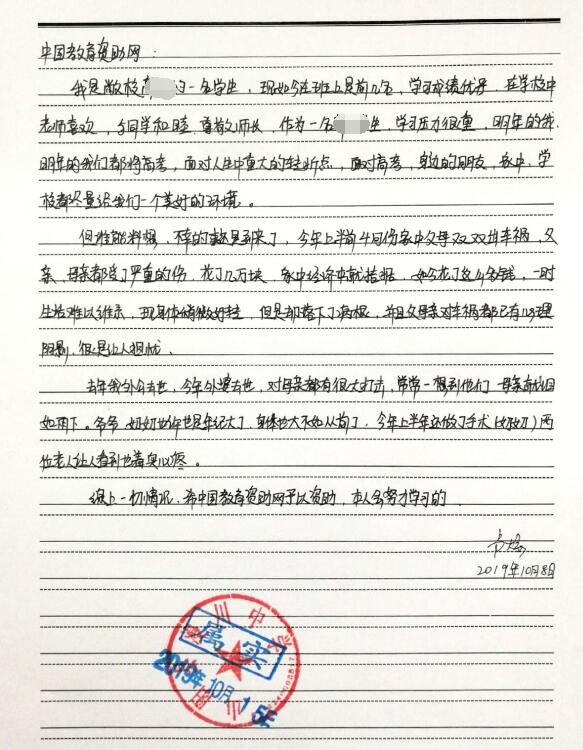 中国教育资助网：
我是敝校的一名学生，现如今在班上是前几名，学习成绩优异，在学校中
老师喜欢，与同学和睦，尊敬师长，作为一名生，学习压力很重，明年的我，
明年的我们都将高考，面对人生中重大的转折点，面对高考，身边的朋友，家中，学
校都尽量给我们一个美好的环境。
但谁能料想，不幸的就还是到来了，今年上半年4月份家中父母双双出车祸，父
亲、母亲都受了严重的伤，花了几万块，家中经济本就拮据，如今花了这么多钱，一时
生活难以维系，现身体稍微好转，但是却落下了病根，并且父母亲对车祸都已有心理
阴影，很是让人担忧。
去年我外公去世，今年外婆去世，对母亲都有很大打击，常常一想到他们母亲就泪
如雨下。爷爷、奶奶也年纪大了，身体也大不如从前了，今年上半年还做了手术(奶奶)两
位老人让人看到也着实心疼。
综上一切情况，希中国教育资助网予以资助，本人会努力学习的。
2019年10月8日
川中学
属实
2019年10月15